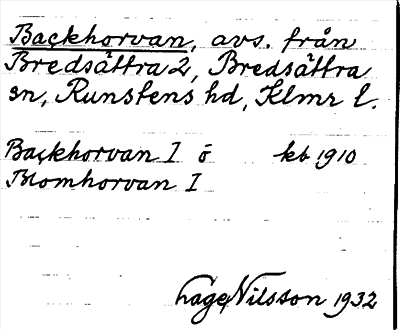 Backhorvan, avs. från
Bredsättra 2, Bredsättra
sn, Runstens hd, Klmr l.
Backhorvan I ö kb 1910
Blomhorvan I
Nilsson 1932